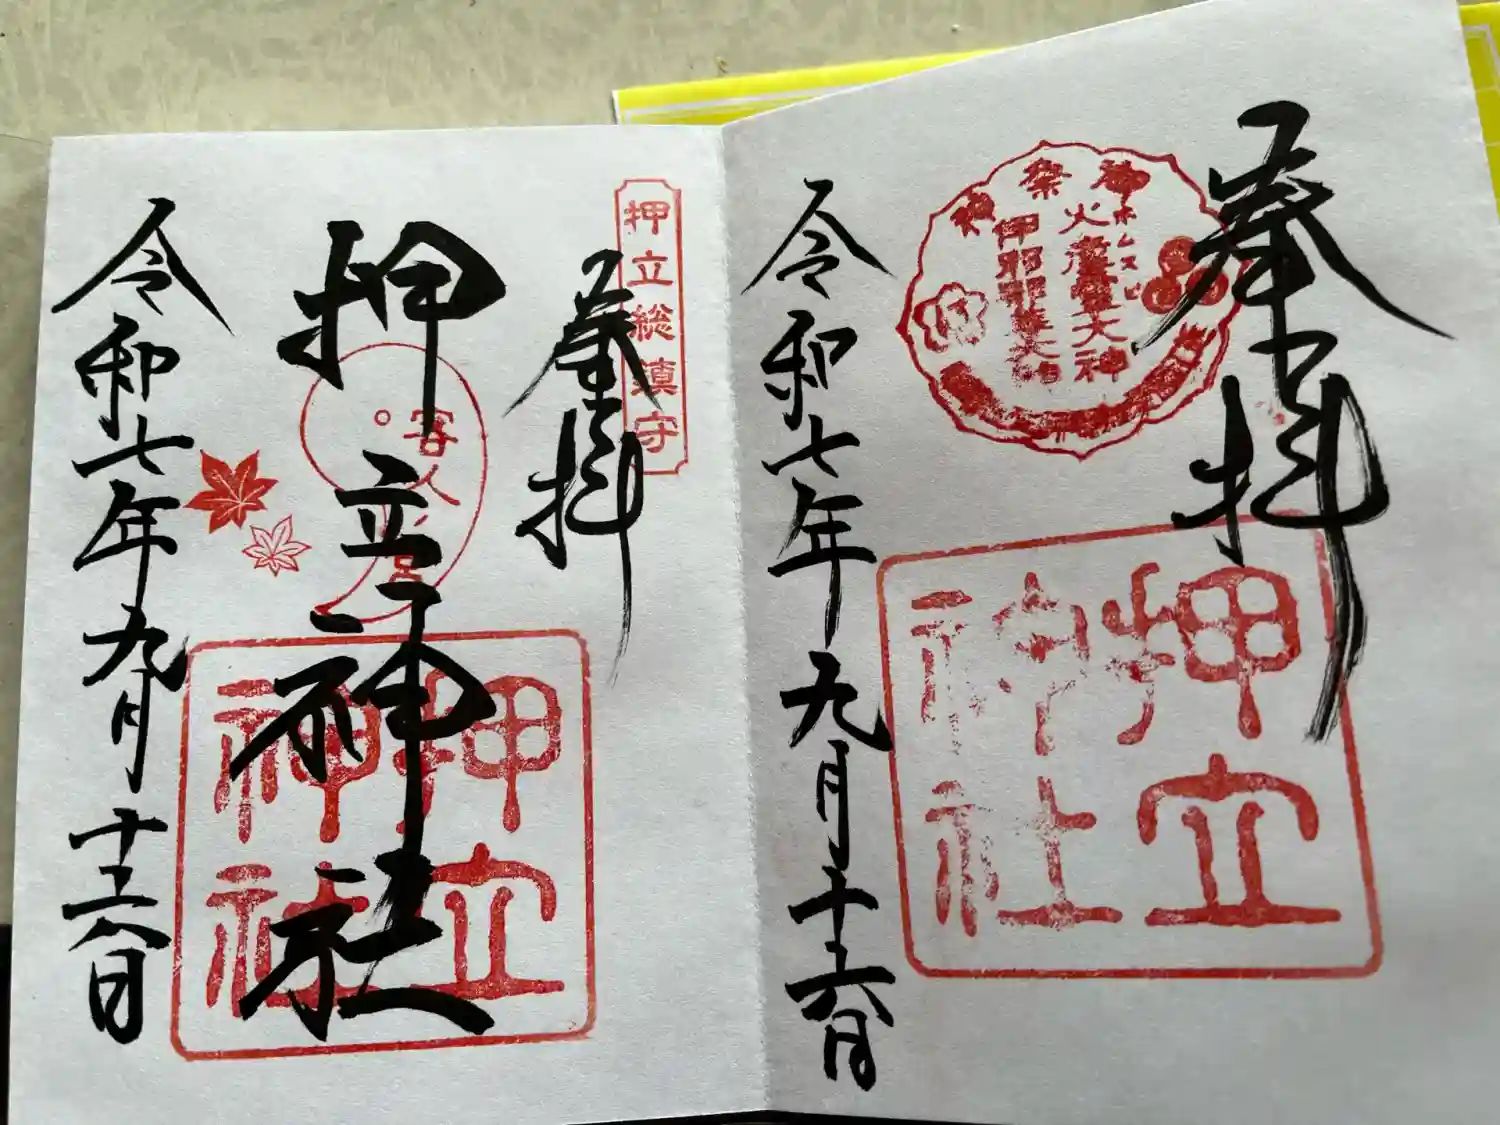 奉拝
神
祭
火産霊大神
押立
神社
令和七年九月十六日
押立総鎮守
奉拝
押立神社
客人
宮
押立
神社
令和七年九月十六日